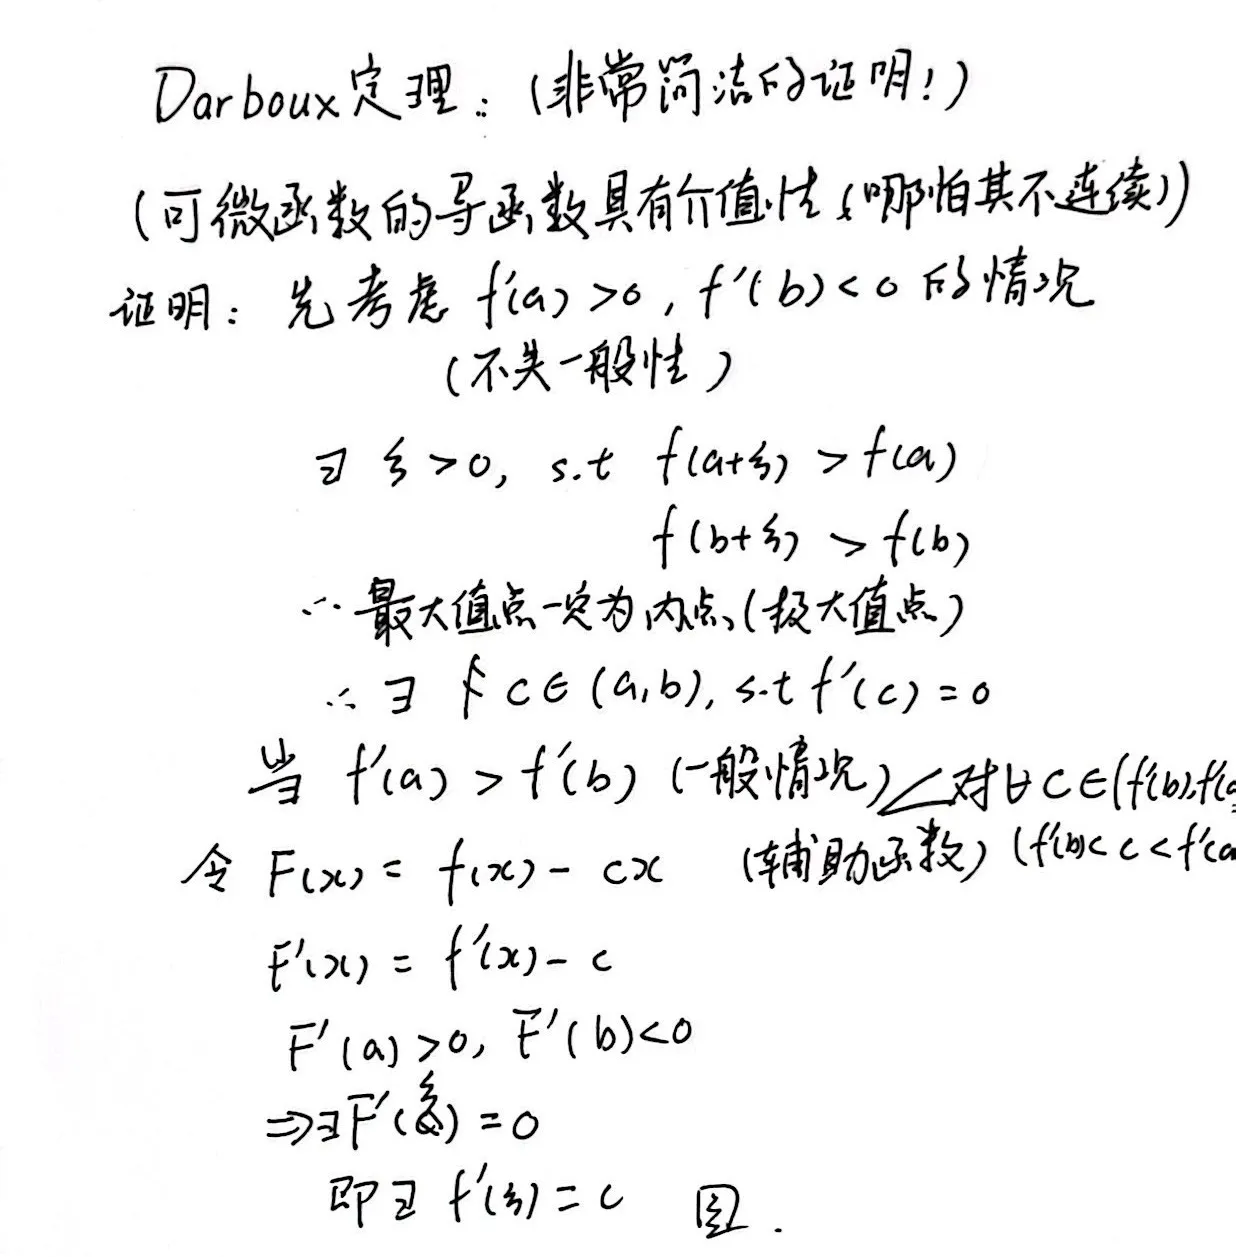 Darboux定理：（非常简洁的证明！）
（可微函数的导函数具有介值性（哪怕其不连续））
证明：先考虑 f'(a)>0, f'(b)<0 的情况
（不失一般性）
∃ ξ>0, s.t f(a+ξ) > f(a)
f(b+ξ) > f(b)
∴ 最大值点一定为内点（极大值点）
∴ ∃ c∈(a,b), s.t f'(c)=0
当 f'(a) > f'(b)（一般情况）对∀C∈(f'(b),f'(a
令 F(x) = f(x) - cx （辅助函数）(f'(b)<c<f'(a
F'(x) = f'(x) - c
F'(a)>0, F'(b)<0
⇒∃F'(ξ)=0
即∃ f'(ξ)=c 图.